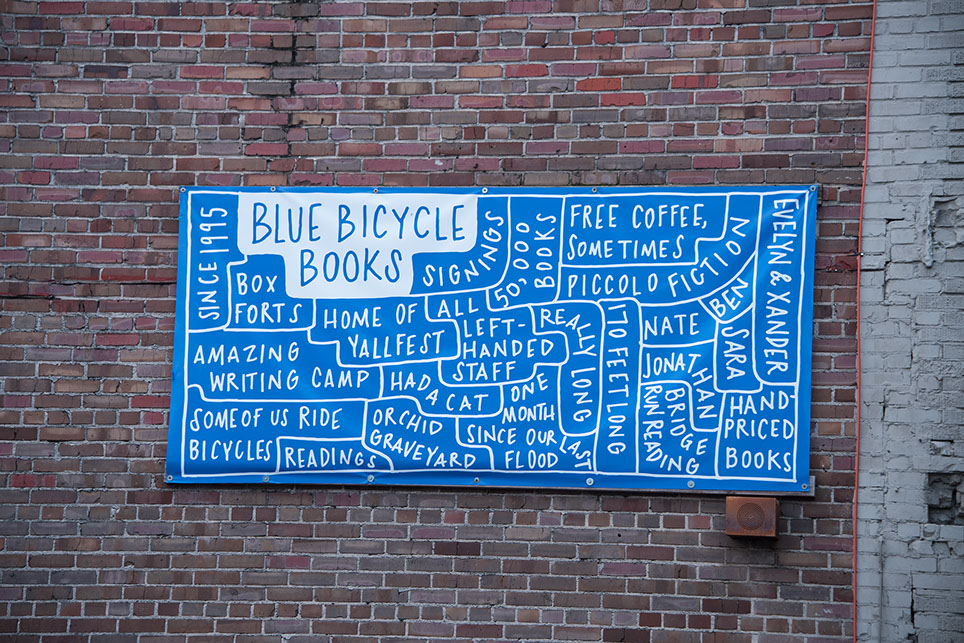 SINCE 1995
BLUE BICYCLE
BOOKS
SIGNINGS
50,000
BOOKS
FREE COFFEE,
SOMETIMES
PICCOLO FICTION
EVELYN & XANDER
BOX
FORTS
HOME OF
YALLFEST
ALL
LEFT-
HANDED
STAFF
REALLY
LONG
170 FEET LONG
NATE
BEN
SARA
AMAZING
WRITING CAMP
HAD
A CAT
ONE
MONTH
SINCE OUR LAST
FLOOD
JONATHAN
BRIDGE
RUN READING
HAND-
PRICED
BOOKS
SOME OF US RIDE
BICYCLES
READINGS
ORCHID
GRAVEYARD